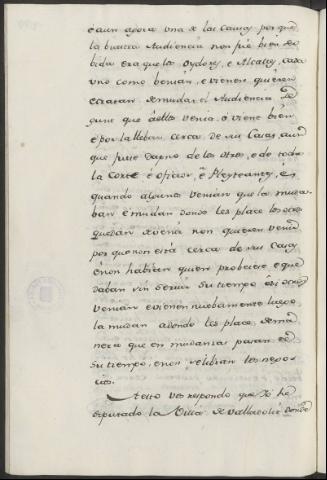 e aun agora una de las causas por que
la nuestra Audiencia non fué bien ser
bida era que los Oydores, e Alcaldes, cada
uno como benian, e vienen, quieren
e tratan de mudar el Audiencia se
gunt que á ellos venia, ó viene bien
é por la llebar cerca de sus Casas, aun
que fuese dapno de los otros, e de toda
la Corte é oficiar, é Pleyteantes, é
quando algunos venian que la muda-
ban é mudan donde les place los otros
quedan atenia non quieren venir
por que non está cerca de sus Casas
é non habian quien probeiese, e que
daban sin servir su tiempo é si otros
venian e vienen nuebamente luego
la mudan adonde les place de ma
nera que en mudanzas pasan el
su tiempo, e non se libran los nego-
cios.
A esto vos respondo que Yo he
deputado la Villa de Valladolid donde